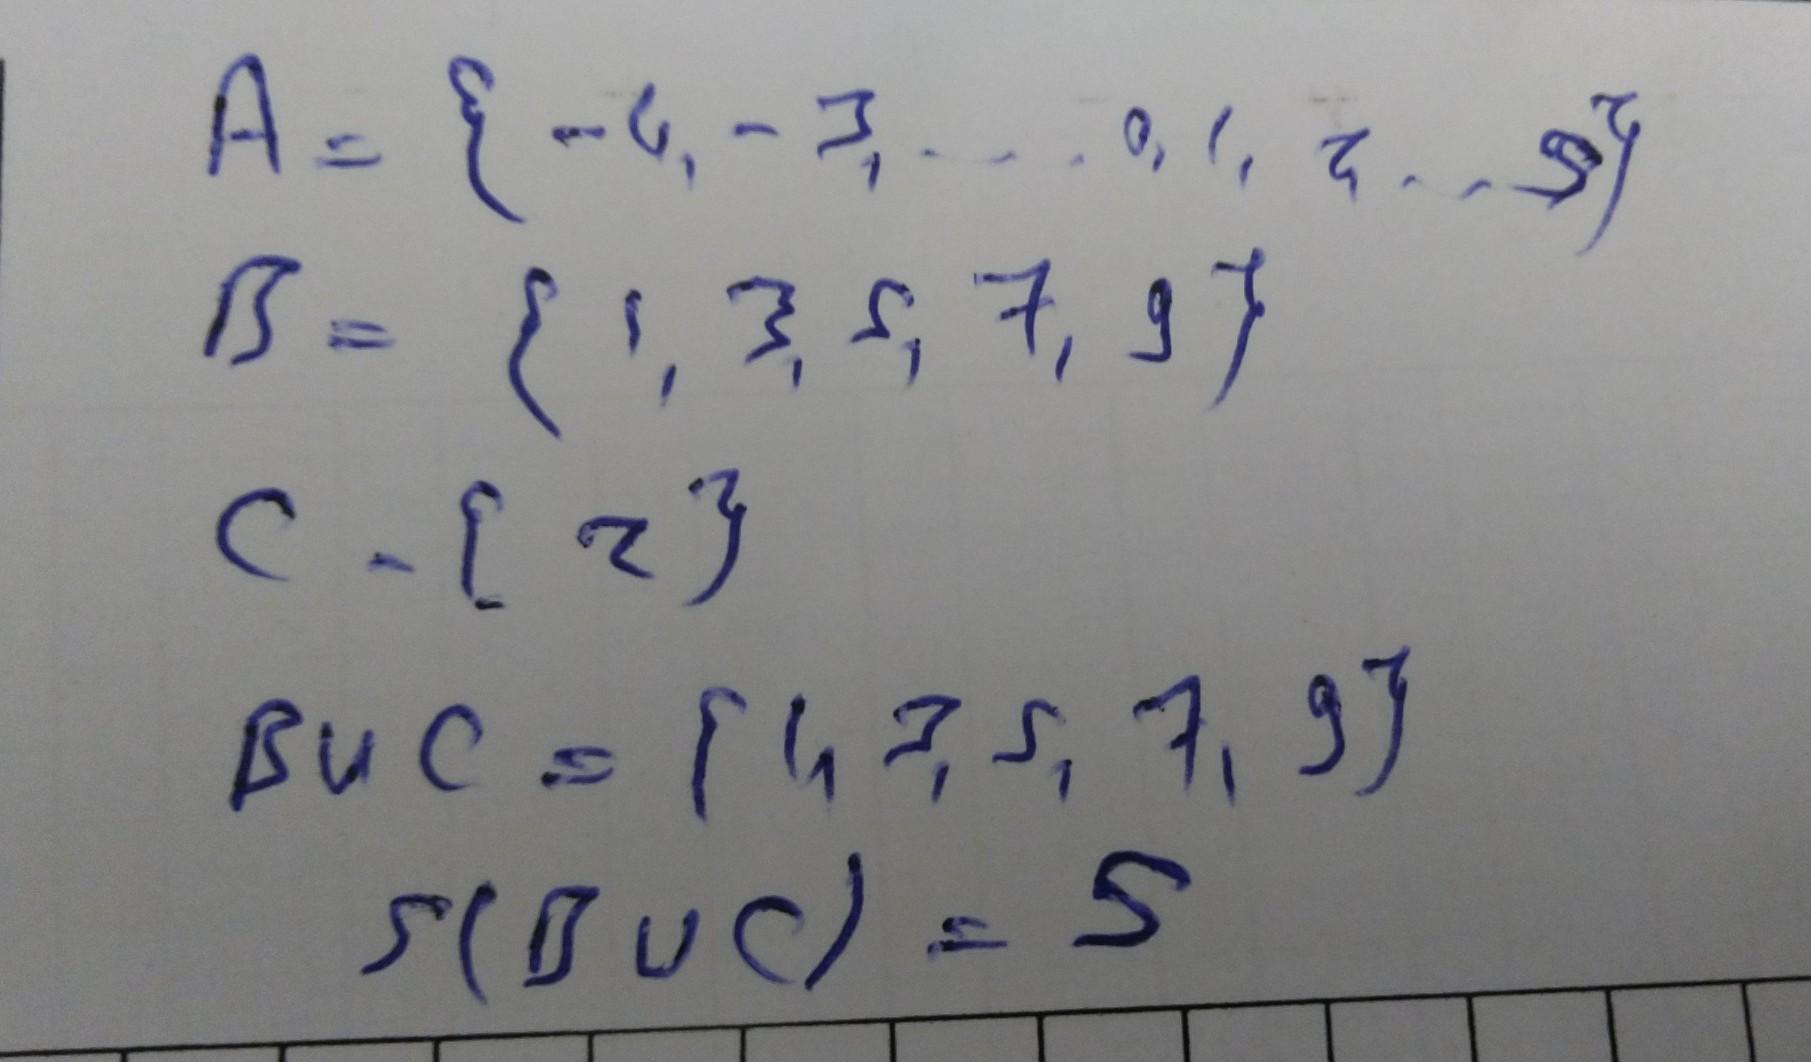 A = { -4, -3, . . . . 0, 1, 2, . . . 5}
B = { 1, 3, 5, 7, 9 }
C = { 2 }
B ∪ C = { 1, 3, 5, 7, 9 }
S( B ∪ C) = 5